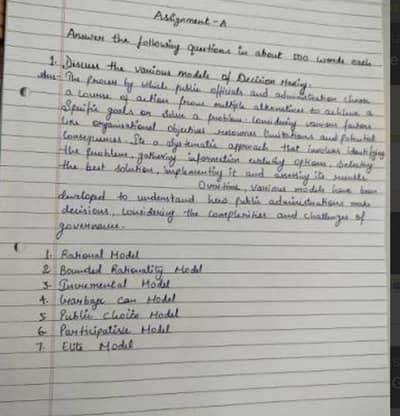 Assignment - A
Answer the following questions in about 500 words each
1. Discuss the various models of Decision Making.
Ans- The process by which public officials and administration choose
a course of action from multiple alternatives to achieve a
specific goals or solve a problem considering various factors
like organisational objectives resources limitations and potential
consequences. Its a systematic approach that involves identifying
the problem, gathering information evaluating options, selecting
the best solution, implementing it and assessing its results.
Over time, various models have been
developed to understand how public administrations make
decisions, considering the complexities and challenges of
governance.
1. Rational Model
2. Bounded Rationality Model
3- Incremental Model
4. Garbage Can Model
5 Public choice Model
6 Participative Model
7. Elite Model